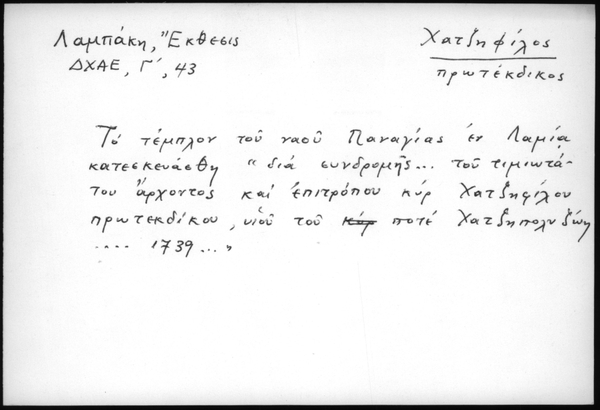 Λαμπάκη, Ἔκθεσις
ΔΧΑΕ, Γ΄, 43
Χατζηφίλος
πρωτέκδικος
Τό τέμπλον τοῦ ναοῦ Παναγίας ἐν Λαμίᾳ
κατεσκευάσθη "διά συνδρομῆς... τοῦ τιμιωτά-
του ἄρχοντος καί ἐπιτρόπου κύρ Χατζηφίλου
πρωτεκδίκου, υἱοῦ τοῦ κύρ ποτέ Χατζηπολυζώη
.... 1739..."